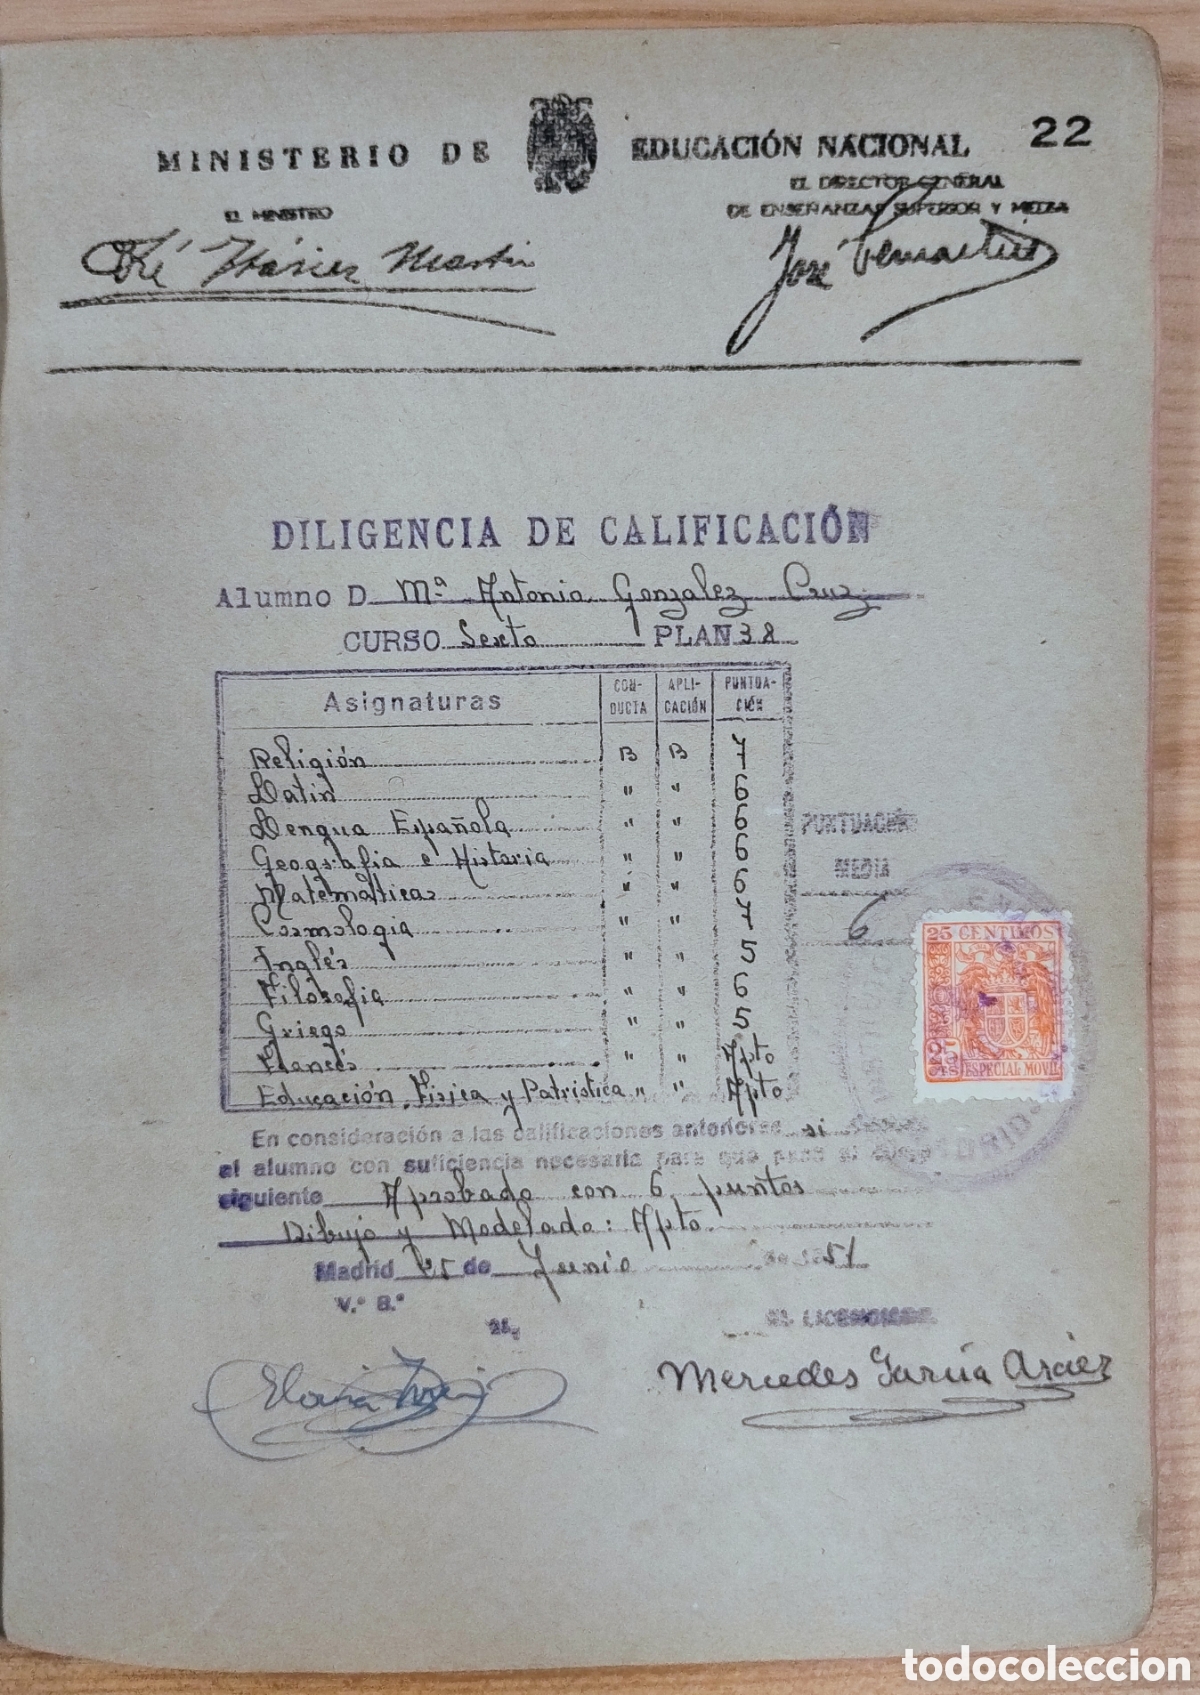 22
MINISTERIO DE EDUCACIÓN NACIONAL
EL MINISTRO
EL DIRECTOR GENERAL
DE ENSEÑANZAS SUPERIOR Y MEDIA
José Ibáñez Martín
José
DILIGENCIA DE CALIFICACIÓN
Alumno D. Mª Antonia Gonzalez Cruz
CURSO Sexto PLAN 38
Asignaturas CON-DUCTA APLI-CACIÓN PUNTUA-CIÓN
Religión B B 7
Latin " " 6
Lengua Española " " 6
Geografia e Historia " " 6
Matemáticas " " 6
Cosmologia " " 7
Inglés " " 5
Filosofia " " 6
Griego " " 5
Francés " " Apto
Educación Fisica y Patristica " " Apto
PUNTUACIÓN
MEDIA
6
25 CENTIMOS
ESPECIAL MOVIL
En consideración a las calificaciones anteriores si
al alumno con suficiencia necesaria para que pase al curso
siguiente Aprobado con 6 puntos
Dibujo y Modelado: Apto
Madrid 25 de Junio de 1951
V.º B.º
EL LICENCIADO
Mercedes García
todocoleccion